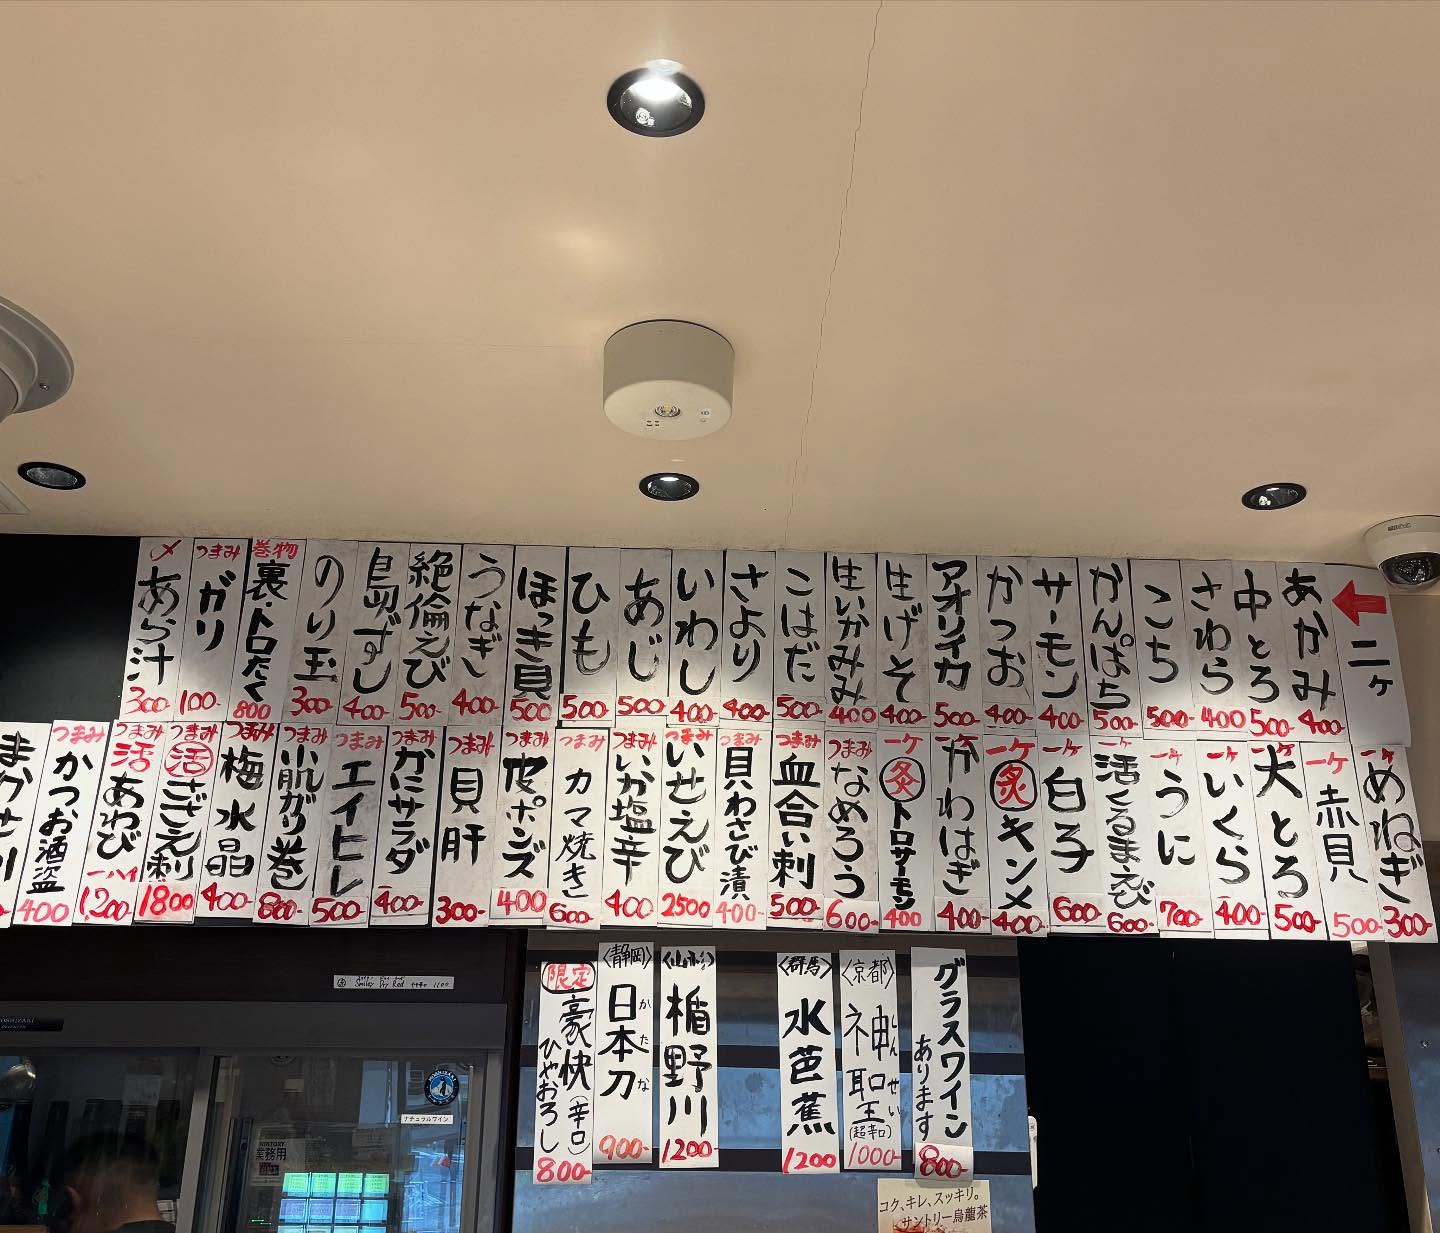 二ヶ
あかみ 400-
中とろ 500-
さわら 400
こち 500-
かんぱち 500-
サーモン 400-
かつお 400-
アオリイカ 500-
生げそ 400-
生いかみみ 400
こはだ 500-
さより 400-
いわし 400-
あじ 500-
ひも 500-
ほっき貝 500
うなぎ 400-
絶倫えび 500-
島ずし 400-
のり玉 300-
巻物 裏・トロたく 800
つまみ ガリ 100-
〆 あら汁 300
一ヶ めねぎ 300-
一ケ 赤貝 500-
一ケ 大とろ 500-
一ケ いくら 400-
一ケ うに 700-
一ケ 活くるまえび 600-
一ケ 白子 600-
一ケ 炙 キンメ 400-
一ケ かわはぎ 400-
一ケ 炙 トロサーモン 400
つまみ なめろう 600-
つまみ 血合い刺 500-
つまみ 貝わさび漬 400-
つまみ いせえび 2500
つまみ いか塩辛 400
つまみ カマ焼き 600-
つまみ 皮ポンズ 400
つまみ 貝肝 300-
つまみ かにサラダ 400-
つまみ エイヒレ 500-
つまみ 小肌ガリ巻 800-
つまみ 梅水晶 400-
つまみ 活 さざえ刺 1800
つまみ 活 あわび 一ハイ 1,200-
つまみ かつお酒盗 400
グラスワイン
あります
800-
〈京都〉
神聖
しんせい
(超辛口)
1000-
〈群馬〉
水芭蕉
1200
〈山形〉
楯野川
1200-
〈静岡〉
日本刀
かたな
900-
限定
豪快(辛口)
ひやおろし
800-
コク、キレ、スッキリ。
サントリー烏龍茶
ナチュラルワイン
業務用
HOSHIZAKI